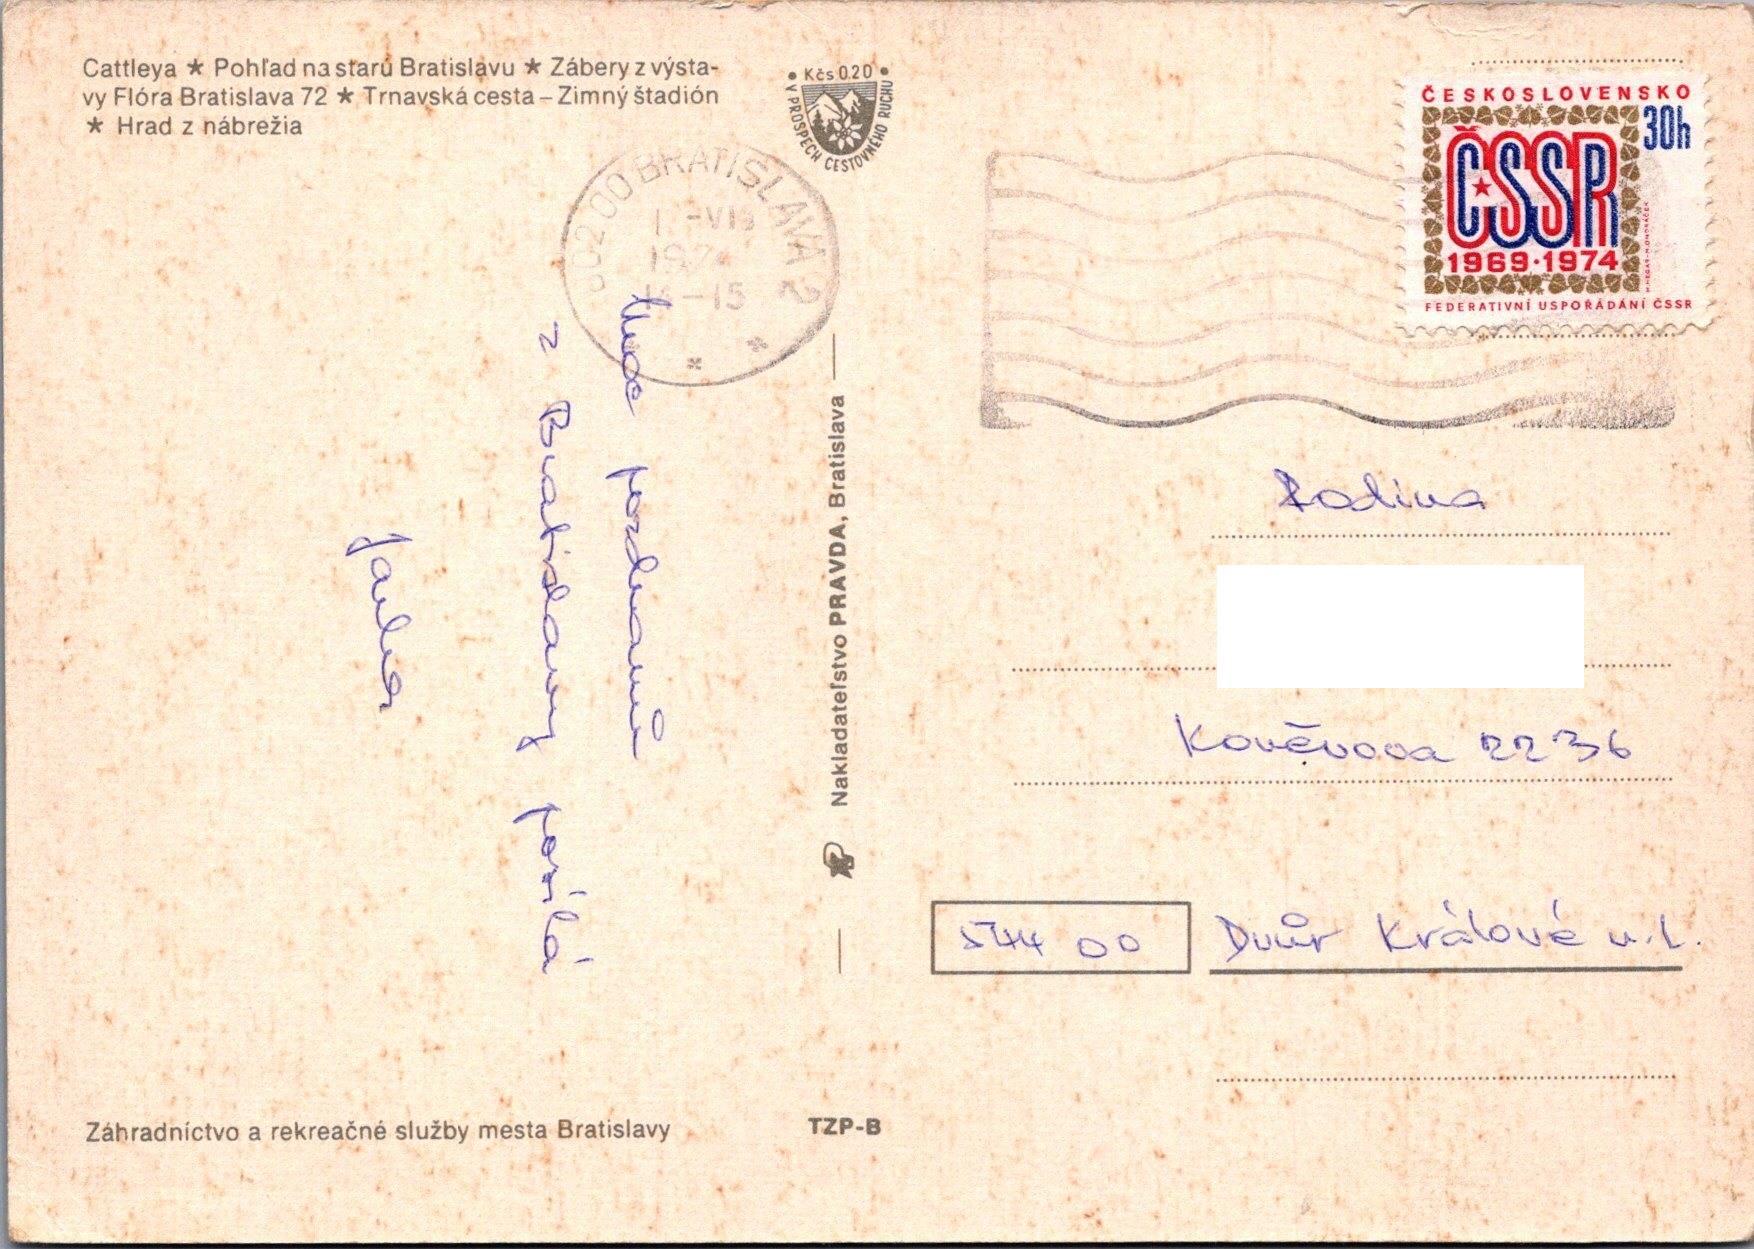 Cattleya ★ Pohľad na starú Bratislavu ★ Zábery z výsta-
vy Flóra Bratislava 72 ★ Trnavská cesta – Zimný štadión
★ Hrad z nábrežia
• Kčs 0.20 •
V PROSPECH CESTOVNÉHO RUCHU
BRATISLAVA 2
ČESKOSLOVENSKO
30h
ČSSR
1969·1974
FEDERATIVNÍ USPOŘÁDÁNÍ ČSSR
pozdravů
z Bratislavy posílá
Jarka
Nakladateľstvo PRAVDA, Bratislava
Rodina
Koněvova 2236
544 00 Dvůr Králové n.L.
Záhradníctvo a rekreačné služby mesta Bratislavy
TZP-B